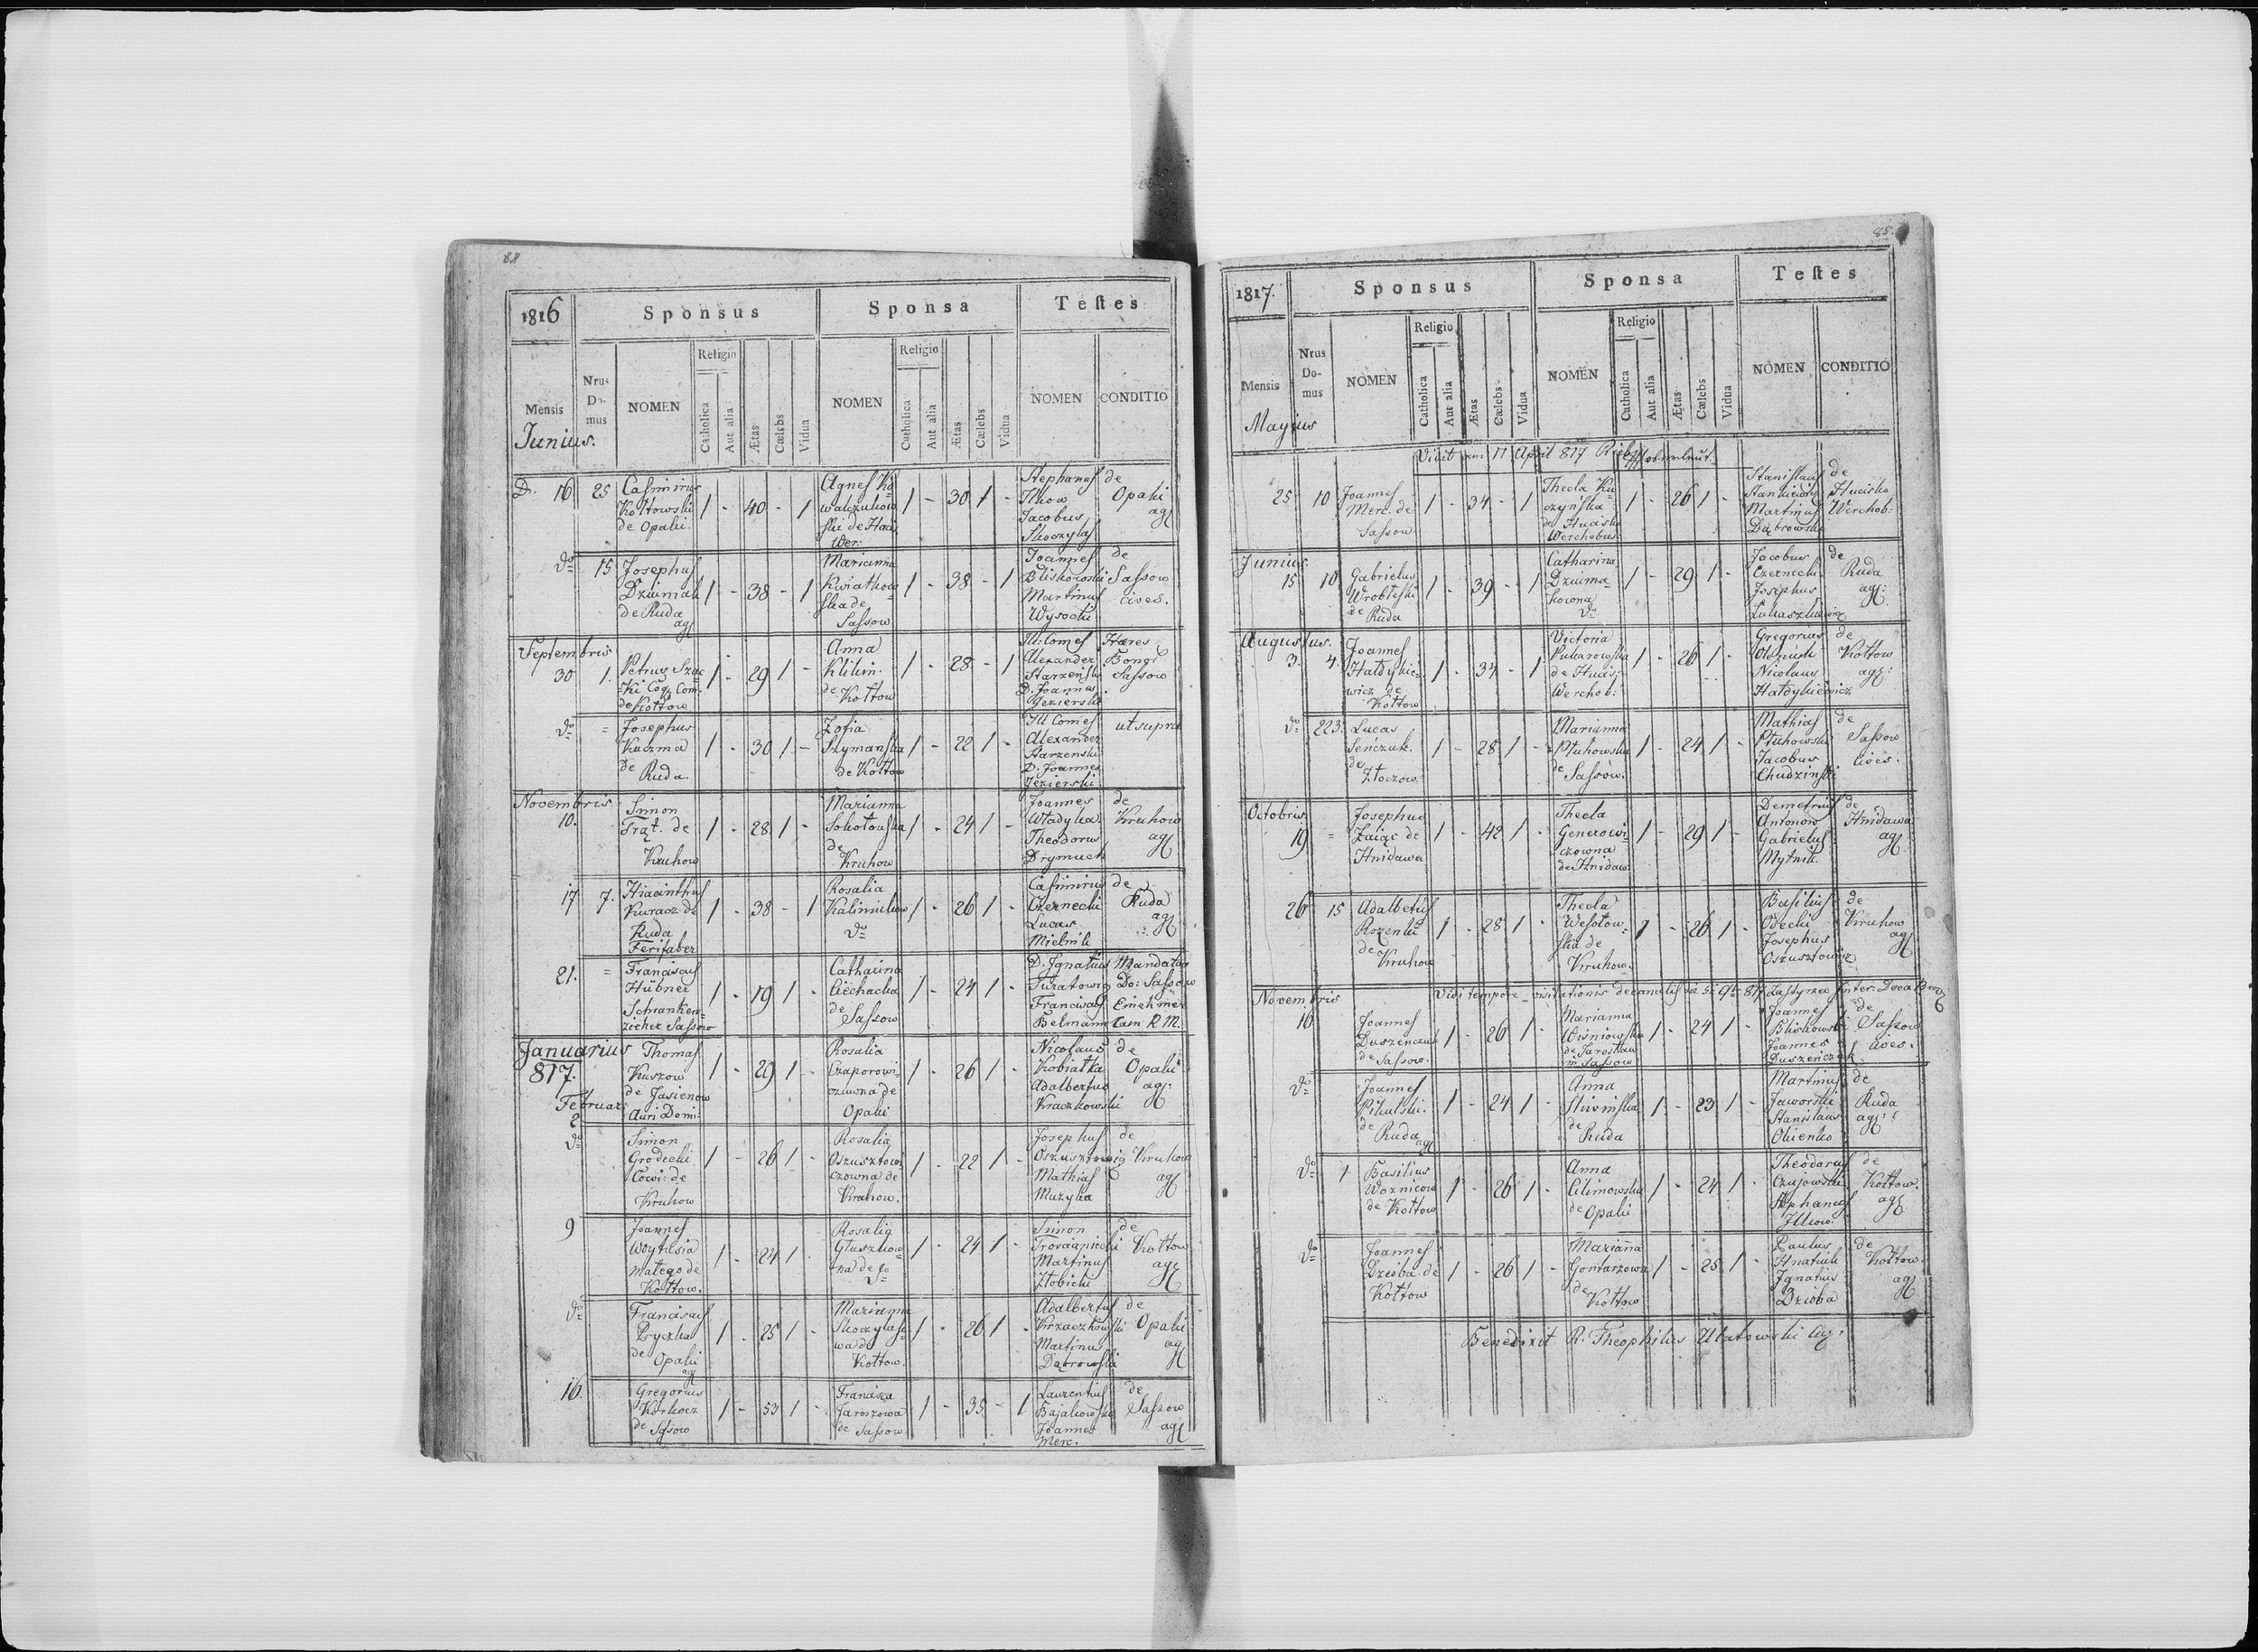 84
1816
Sponsus
Sponsa
Testes
Mensis
Nrus Do- mus
NOMEN
Religio
Catholica
Aut alia
Ætas
Cælebs
Vidua
NOMEN
Religio
Catholica
Aut alia
Ætas
Cælebs
Vidua
NOMEN
CONDITIO
Junius.
D. 16 25 Casimirus 1 - 40 - 1 Agnes Ko= 1 - 30 1 - Stephanus de
Kołtowski walczukow Ilkow Opaki
de Opaki ska de Huc: Jacobus ag
Wer: Skoczylas
do 15 Josephus 1 - 38 - 1 Marianna 1 - 38 - 1 Joannes de
Dziuniak Kwiatkow= Bliskowski Sassow
de Ruda ska de Martinus cives.
ag Sassow Wysocki
Septembris
30 1. Petrus Szac 1 - 29 1 - Anna 1 - 28 - 1 Ill: Comes Hæres
=ki Coq. Com. Klilim Alexander Bonor
de Kołtow de Kołtow Starzeński Sassow
D. Joannes
Jezierski
do = Josephus 1 - 30 1 - Zofia 1 - 22 1 - Ill Comes ut supra
Kuczma Szymanska Alexander
de Ruda. de Kołtow Starzenski
D. Joannes
Jezierski
Novembris
10. Simon 1 - 28 1 - Marianna 1 - 24 1 - Joannes de
Frąt. de Sokołowska Władyka Kruhow
Kruhow de Kruhow Theodorus ag
Drymuch
17 7. Hiacinthus 1 - 38 - 1 Rosalia 1 - 26 1 - Casimirus de
Kuracz de Kalimiukow Czernecki Ruda
Ruda do Lucas ag
Ferifaber Mielnik
21. = Franciscus 1 - 19 1 - Catharina 1 - 24 1 - D. Ignatius Mandatar
Hübner Ciechacka Juratowicz Do: Sassow
Schranken= de Franciscus Einehmer
zicher Sassow Sassow Belmann Cam R M.
Januarius
817.
Februar:
2 Thomas 1 - 29 1 - Rosalia 1 - 26 1 - Nicolaus de
Kuszow Czaporowi= Kobiałka Opaki
de Jasienow czowna de Adalbertus ag:
Auri Dom: Opaki Kraczkowski
do Simon 1 - 26 1 - Rosalia 1 - 22 1 - Josephus de
Grodecki Oszusztowi Oszusztowicz Kruhow
Cowi: de czowna de Mathias ag
Kruhow Kruhow. Muzyka
9 Joannes 1 - 24 1 - Rosalia 1 - 24 1 - Simon de
Woytusia Głuszkow= Martinus Kołtow
Małego de na de do Złobicki ag
Kołtow.
do Franciscus 1 - 25 1 - Marianna 1 - 26 1 - Adalbertus de
Pryczka Skoczylaso= Krzaczkowski Opaki
de Opaki wa de Martinus ag
ag Kołtow. Dąbrowski
16. Gregorius 1 - 53 1 - Francisca 1 - 35 - 1 Laurentius de
Korkocz Jaroszowa Bajakowski Sassow
de Sassow de Sassow Joannes ag
Merc.
85.
1817.
Sponsus
Sponsa
Testes
Mensis
Nrus Do- mus
NOMEN
Religio
Catholica
Aut alia
Ætas
Cælebs
Vidua
NOMEN
Religio
Catholica
Aut alia
Ætas
Cælebs
Vidua
NOMEN
CONDITIO
Mayius
Vidit 17 April 817
25 10 Joannes 1 - 34 - 1 Thecla Ku 1 - 26 1 - Stanislaus de
Merc. de czyńska Stankiewicz Hucisko
Sassow de Hucisko Martinus Werchob:
Werchobus Dąbrowski
Junius
15 10 Gabrielus 1 - 39 - 1 Catharina 1 - 29 1 - Jacobus de
Wrobleski Dziuma= Czernecki Ruda
de Ruda kowna Josephus ag:
do Łukaszkiewicz
Augustus.
3. 4. Joannes 1 - 34 - 1 Victoria 1 - 26 1 - Gregorius de
Hałdykie= Pukarowska Olejnik Kołtow
wicz de de Hucis= Nicolaus ag:
Kołtow Werchob: Hałdykiewicz
do 223. Lucas 1 - 28 1 - Marianna 1 - 24 1 - Mathias de
Senczuk. Ptuhowska Ptuhowski Sassow
de Złoczow de Sassow. Jacobus cives.
Chudzinski
Octobris
19 = Josephus 1 - 42 1 - Thecla 1 - 29 1 - Demetrius de
Zaiąc de Generowi= Antonow Hnidawa
Hnidawa czowna Gabrielus ag
de Hnidaw: Mytnik
26 15 Adalbertus 1 - 28 1 - Thecla 1 - 26 1 - Basilius de
Rozenk Wesołow= Odecki Kruhow
de Kruhow ska de Josephus ag
Kruhow. Oszusztowicz
Novembris
Vidi tempore visitationis decanalis
16 Joannes 1 - 26 1 - Marianna 1 - 24 1 - Joannes de
Duszenczuk Wisniowska Bliskowski Sassow
de Sassow. de Jarosław Joannes cives.
in Sassow Duszenczuk
do Joannes 1 - 24 1 - Anna 1 - 23 1 - Martinus de
Pikulski. Sliwińska Jaworski Ruda
de Ruda de Ruda Stanislaus ag:
ag Okienko
do 1 Basilius 1 - 26 1 - Anna 1 - 24 1 - Theodorus de
Woznicow Cilimowska Czujowski Kołtow.
de Kołtow de Opaki Stephanus ag
Ilkow
do Joannes 1 - 26 1 - Marianna 1 - 25 1 - Paulus de
Dzioba de Gontarzowna Hnatiuk Kołtow.
Kołtow de Kołtow Ignatius ag
Dzioba
Benedixit R. Theophilus Ulatowski